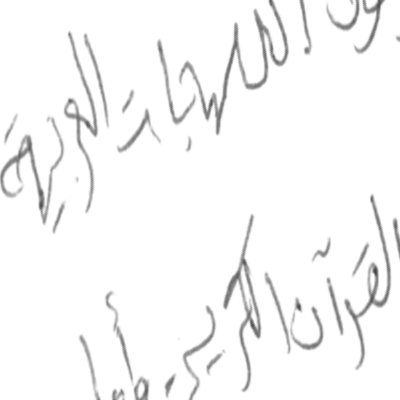 اللهجات العربية
القرآن الكريم وأما